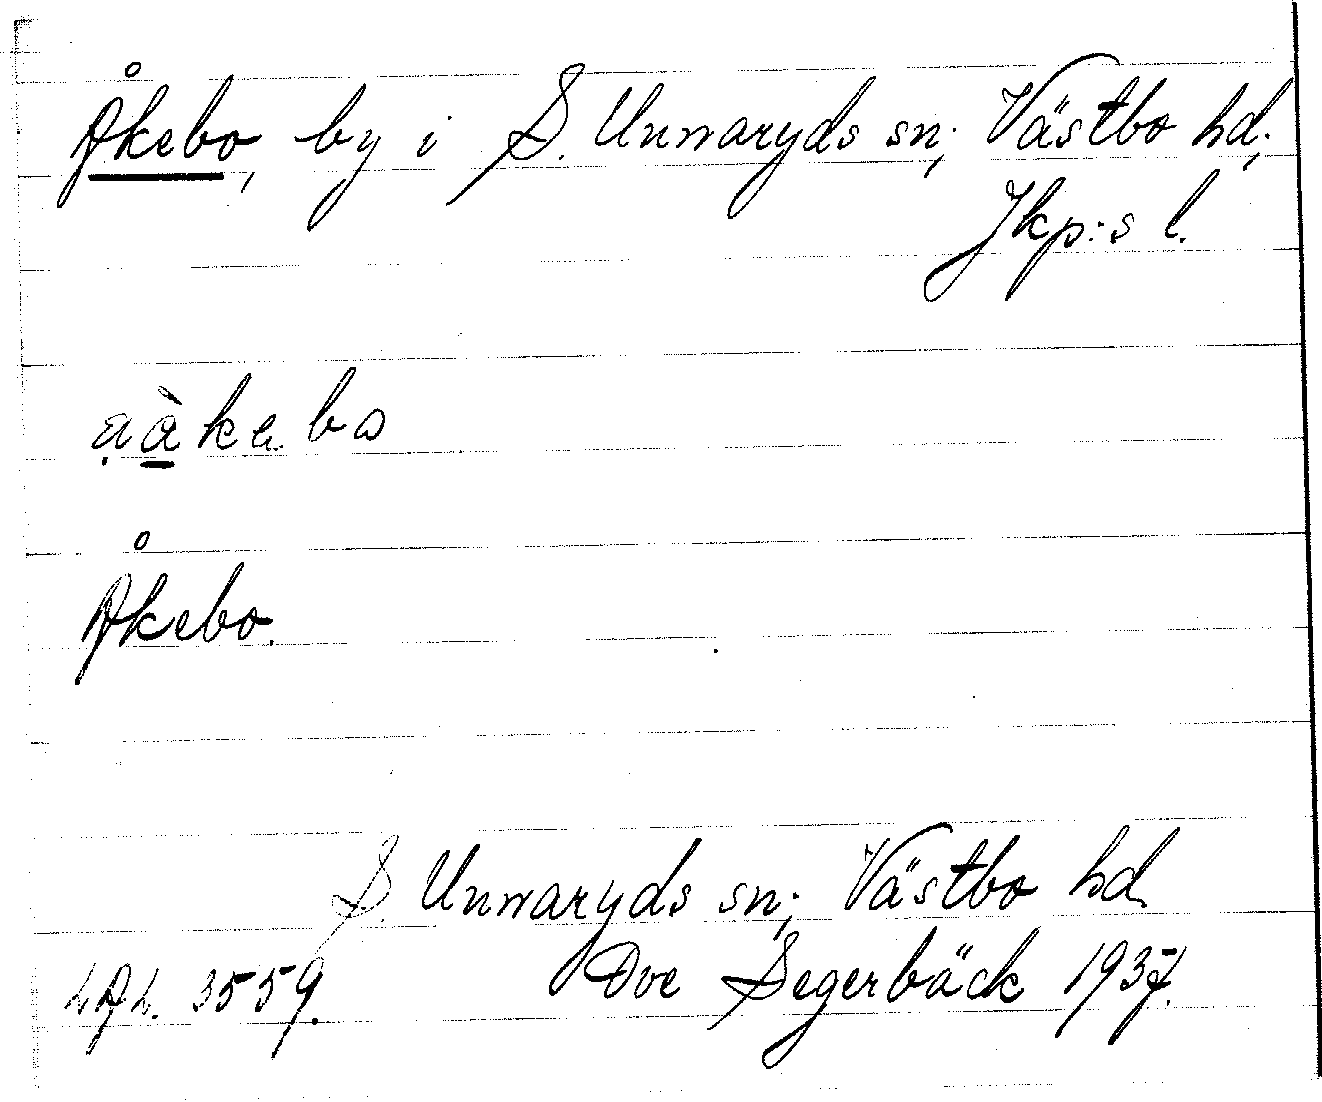 Åkebo, by i S. Unnaryds sn; Västbo hd;
Jkp:s l.
Åkebo.
S. Unnaryds sn; Västbo hd
LAL. 3559. Ove Segerbäck 1937.